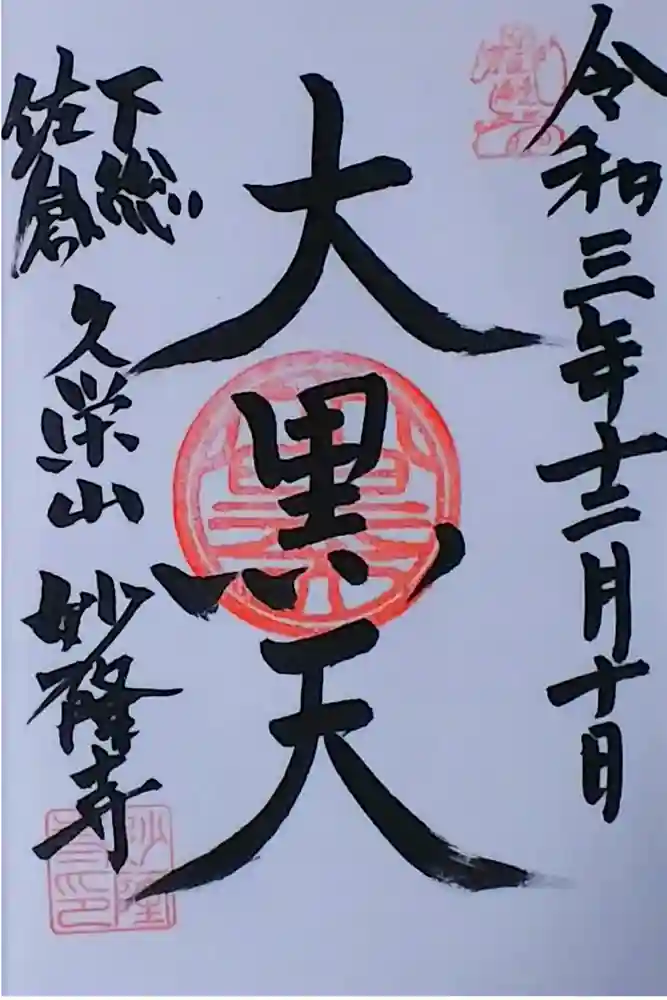 令和三年十二月十日
大黒天
下総
佐倉
久栄山
妙隆寺